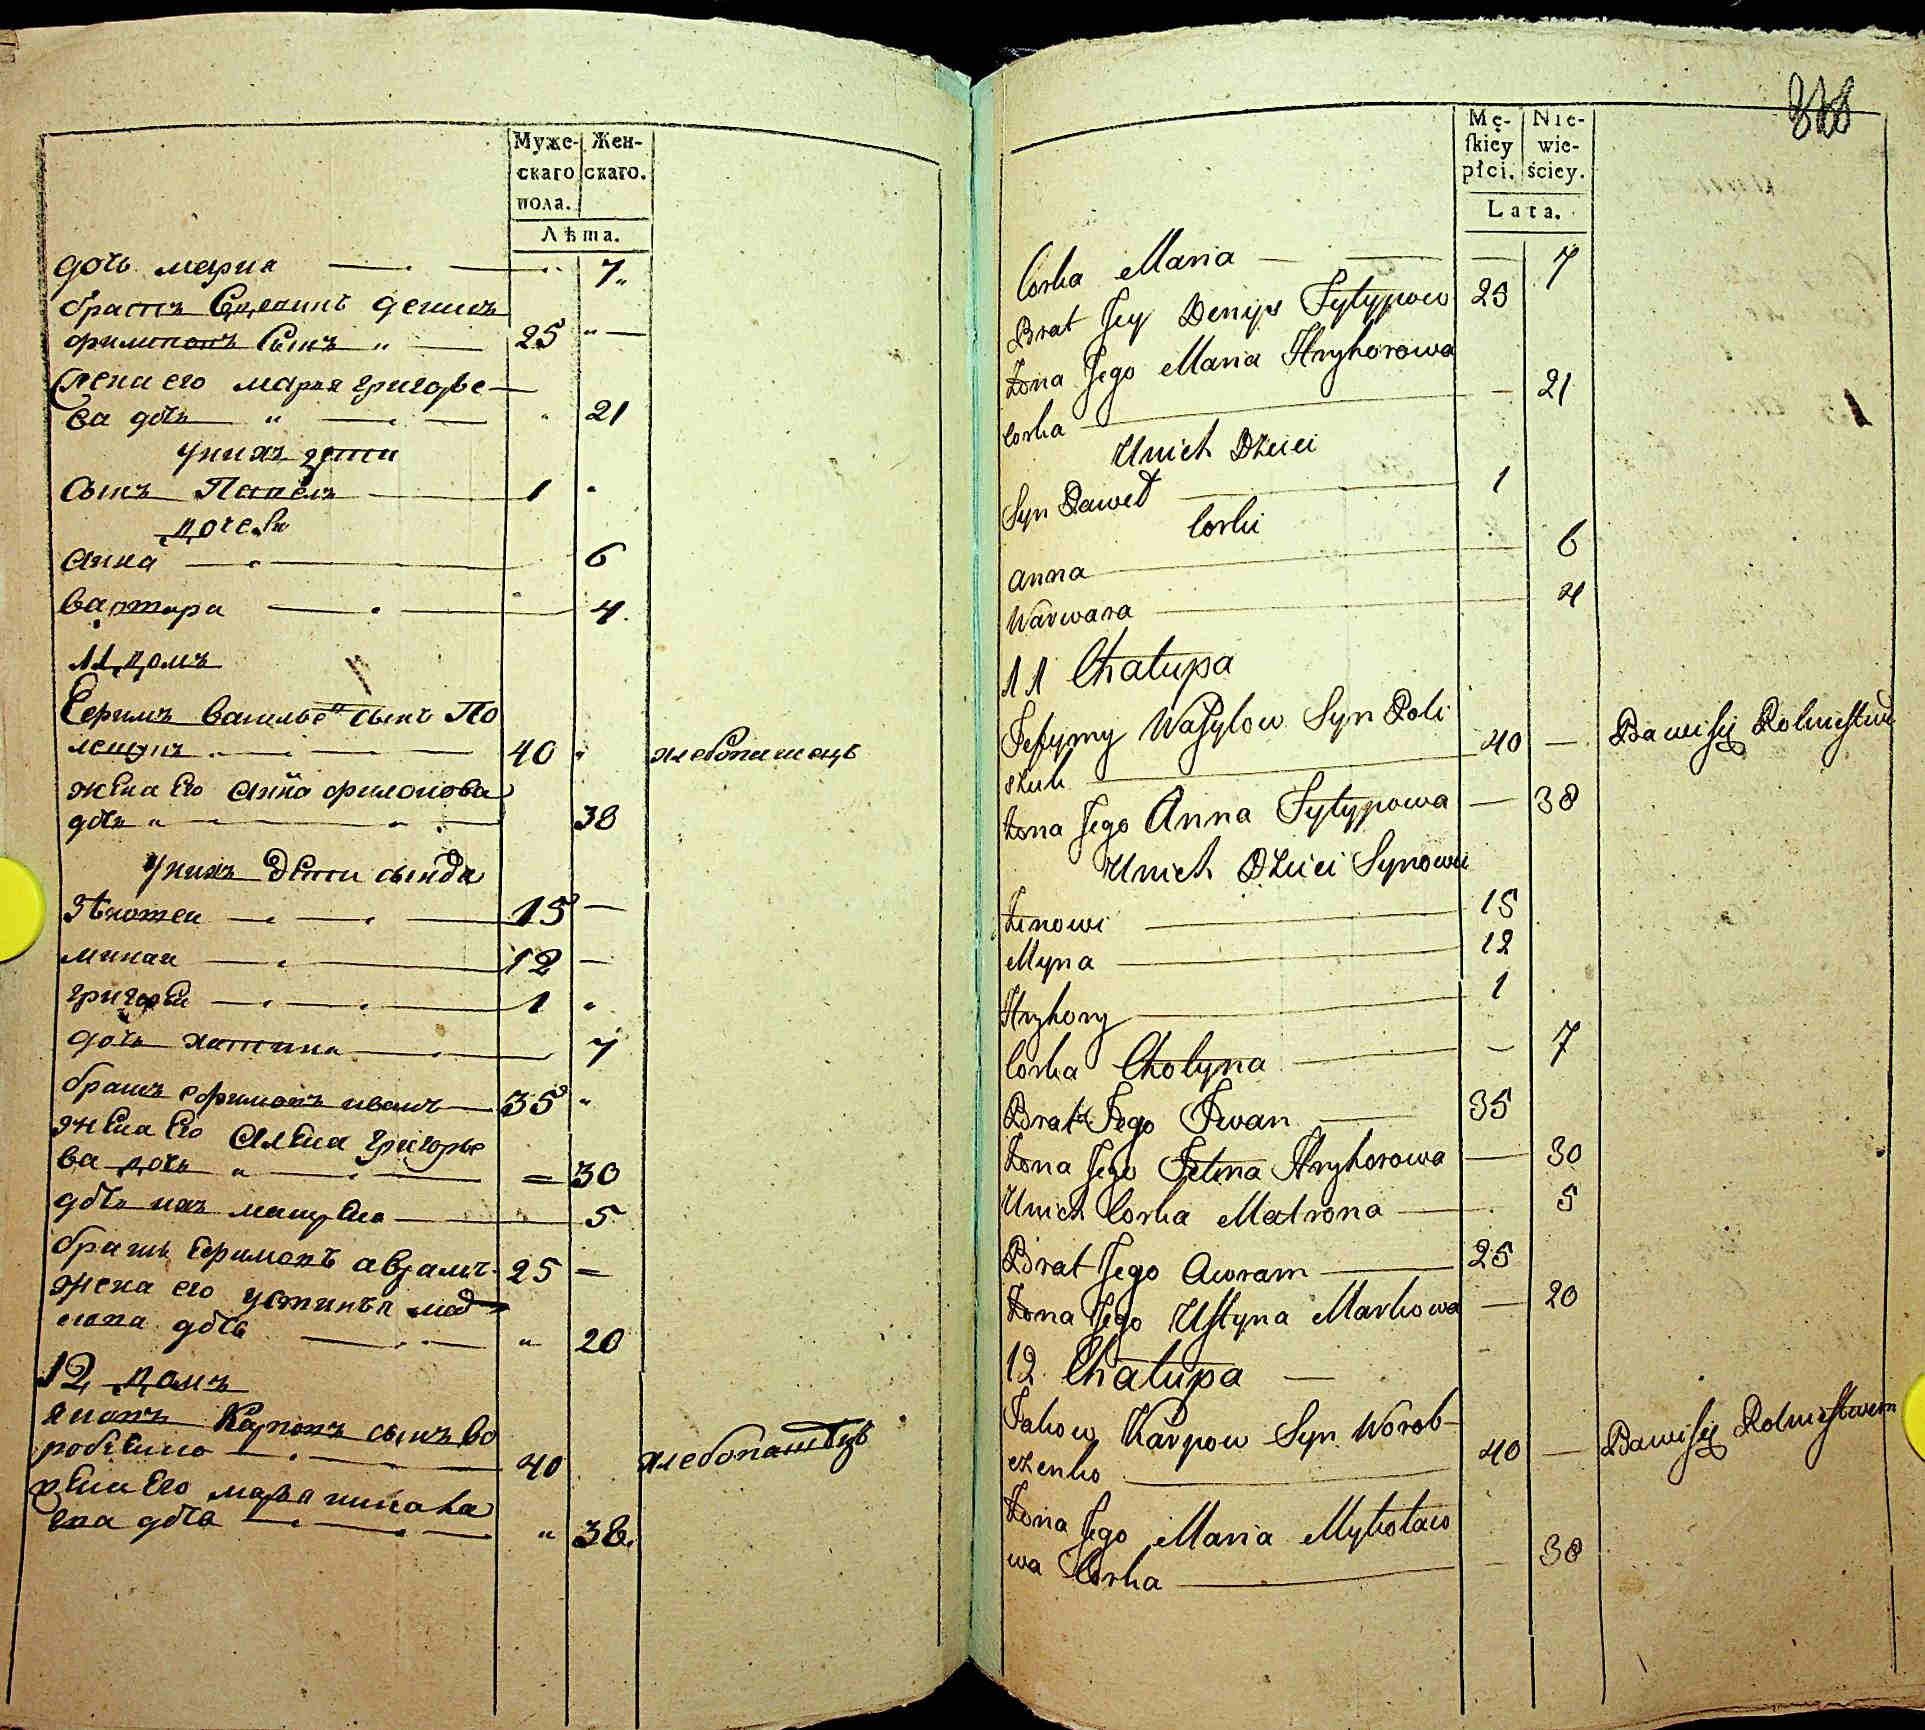 Муже-
скаго
пола.
Жен-
скаго.
Лѣта.
дочь мария 7
братъ денисъ
филиповъ сынъ 25
жена его мария григорье
ва дочь 21
у нихъ дети
сынъ Павелъ 1
дочери
анна 6
варвара 4
11 домъ
Ефимъ василье сынъ По
лещукъ 40 хлебопашецъ
жена Его анна филипова
дочь 38
у нихъ дети сыновя
зѣновеи 15
минаи 12
григореи 1
дочь хотина 7
братъ ефимовъ иванъ 35
жена Его алена григорье
ва дочь 30
дочь ихъ 5
братъ Ефимовъ аврамъ 25
жена его устинья
дочь 20
12 домъ
яковъ Карповъ сынъ во
робченко 40 хлебопашецъ
жена Его маря никола
ева дочь 38
Mę-
skiey
płci.
Nie-
wie-
ściey.
Lata.
Corka Maria 7
Brat Jey Denys Fylypow 25
Żona Jego Maria Hryhorowa
corka 21
Unich Dzieci
Syn Paweł 1
Corki
Anna 6
Warwara 4
11 Chałupa
Jefymy Wasylow Syn Poli
szuk 40 Bawi się Rolnictwem
Żona Jego Anna Fylypowa 38
Unich Dzieci Synowie
Zinowi 15
Myna 12
Hryhory 1
Corka Chotyna 7
Brat Jego Iwan 35
Żona Jego Jelena Hryhorowa 30
Unich Corka Matrona 5
Brat Jego Awram 25
Żona Jego Ustyna Markowa 20
12 Chałupa
Jakow Karpow Syn Worob-
czenko 40 Bawi się Rolnictwem
Żona Jego Maria Mykołaio
wa Corka 38